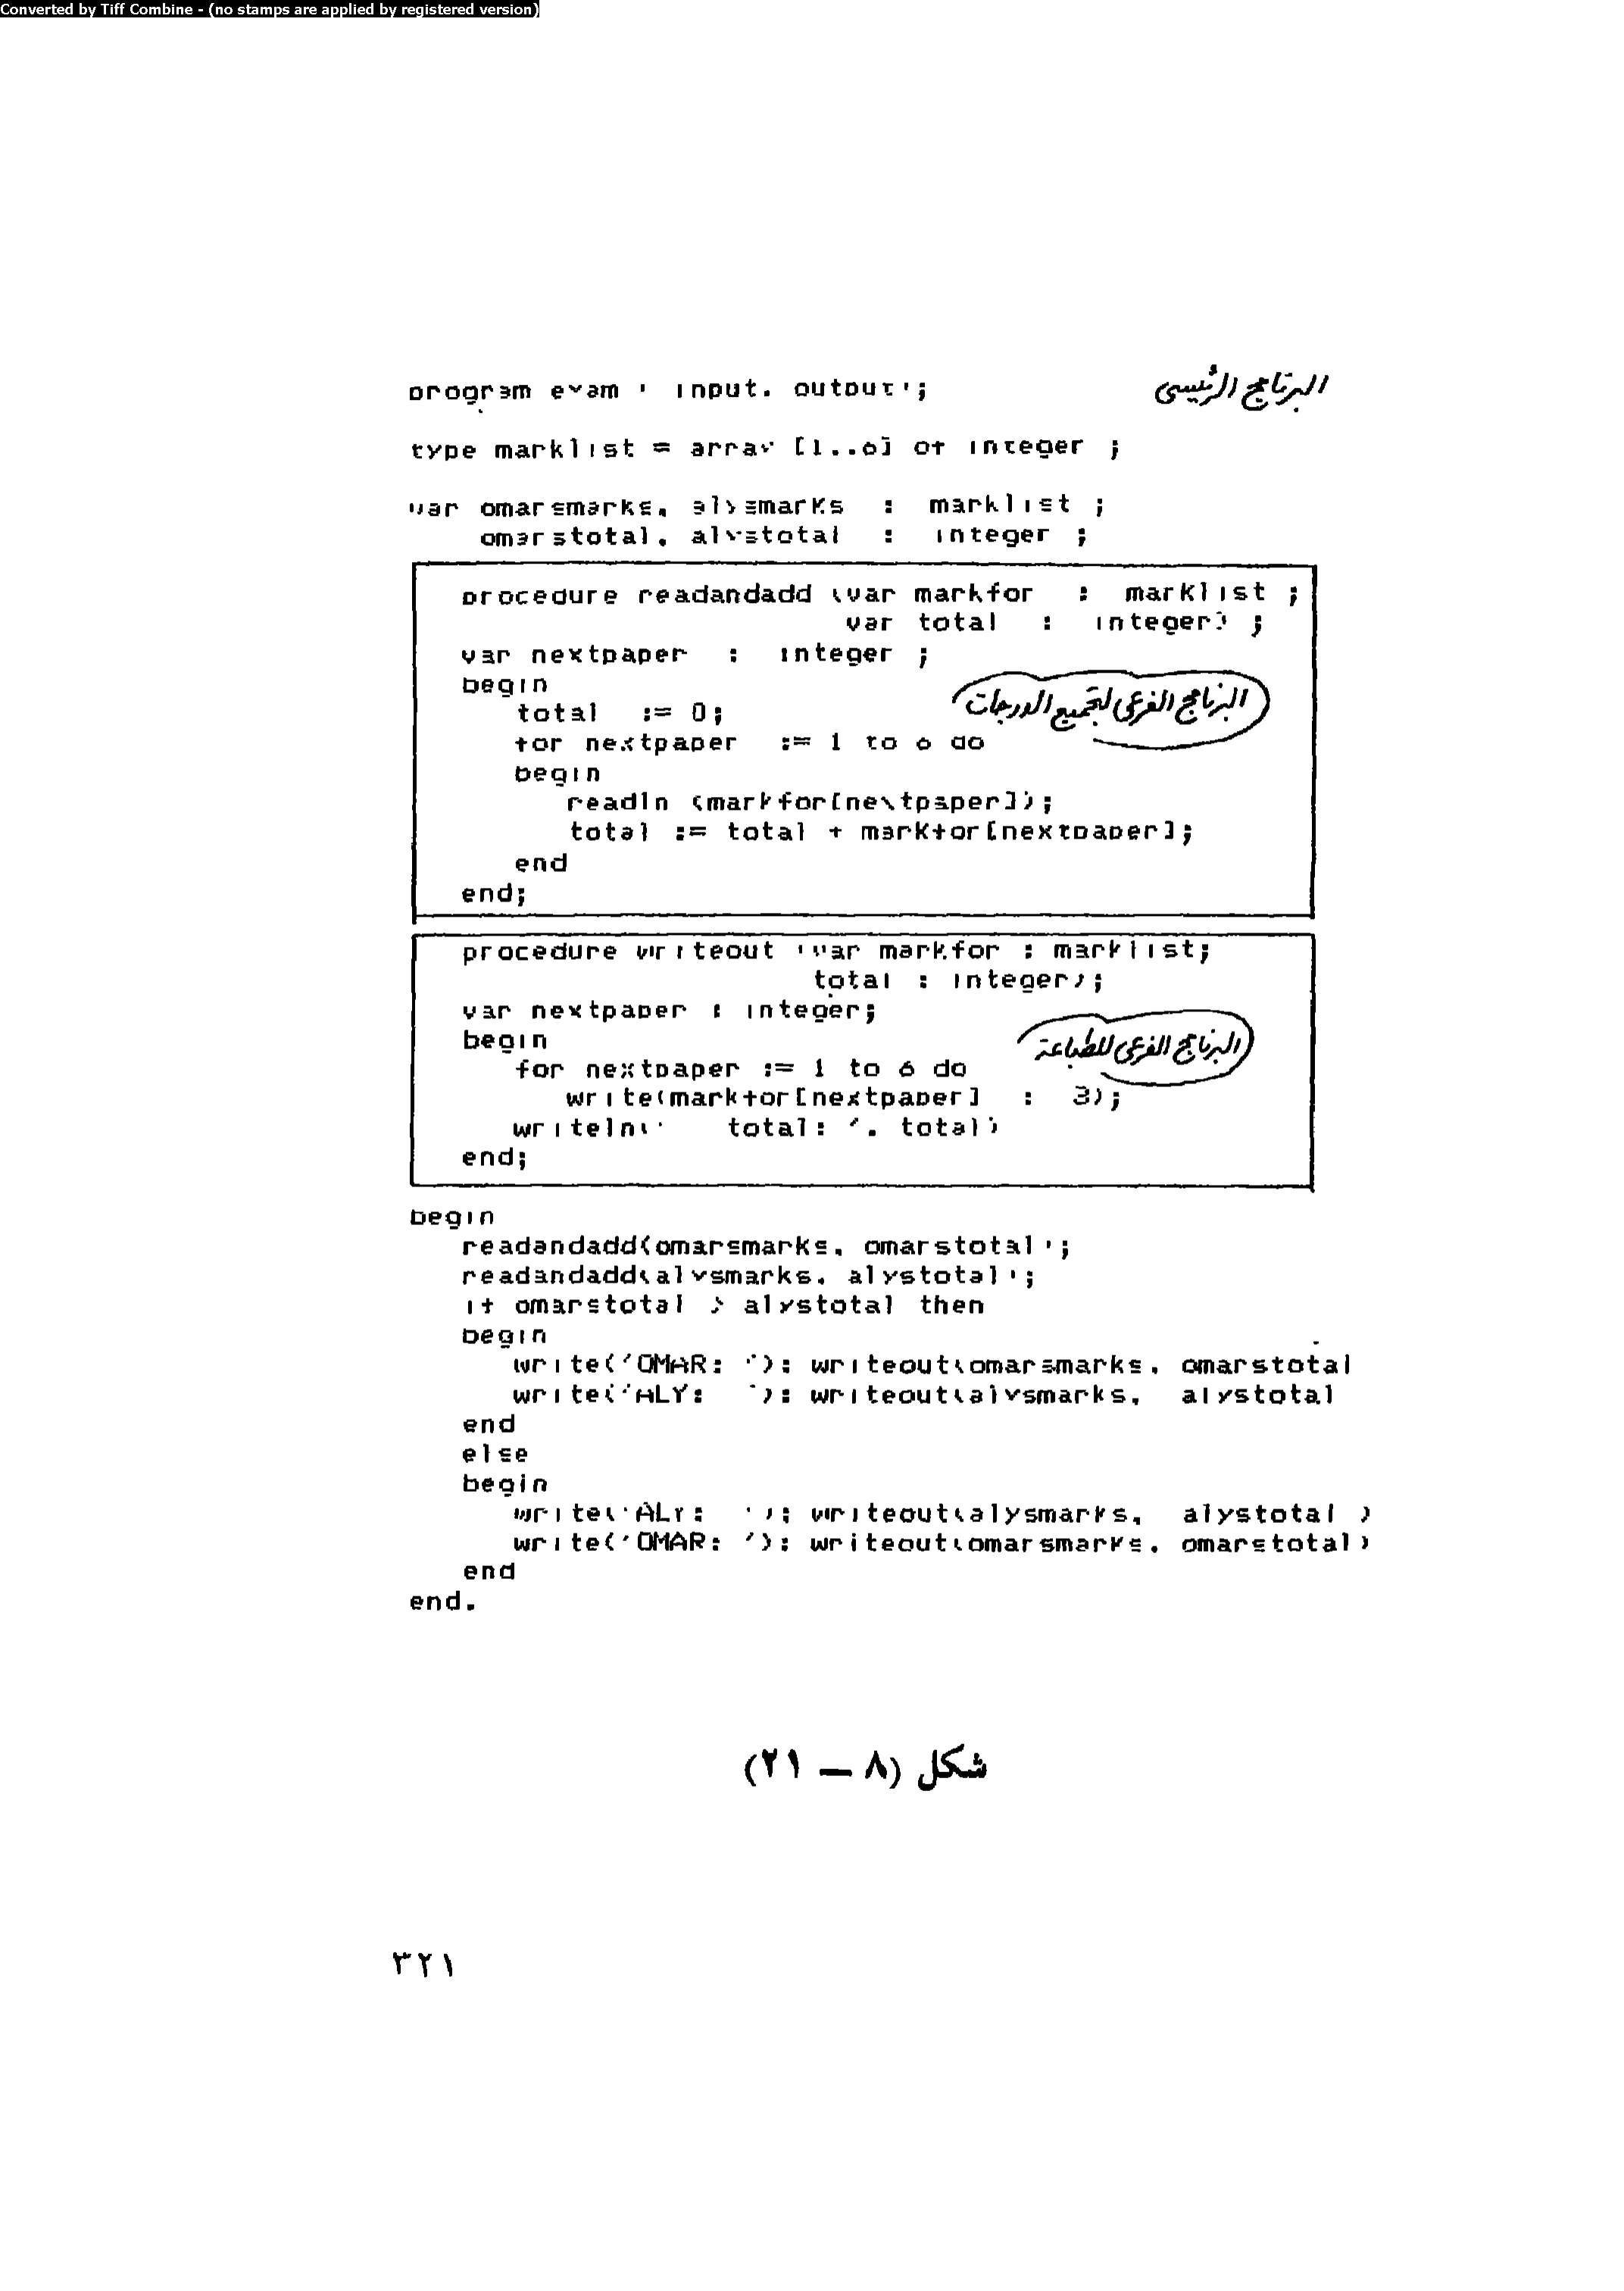 Converted by Tiff Combine - (no stamps are applied by registered version)
program exam ( input, output);
البرنامج الرئيسى
type marklist = array [1..6] of integer ;
var omarsmarks, alysmarks : marklist ;
omarstotal, alystotal : integer ;
procedure readandadd (var markfor : marklist ;
var total : integer) ;
var nextpaper : integer ;
begin
البرنامج الفرعى لتجميع الدرجات
total := 0;
for nextpaper := 1 to 6 do
begin
readln (markfor[nextpaper]);
total := total + markfor[nextpaper];
end
end;
procedure writeout (var markfor : marklist;
total : integer);
var nextpaper : integer;
begin
البرنامج الفرعى للطباعة
for nextpaper := 1 to 6 do
write(markfor[nextpaper] : 3);
writeln(' total: ', total)
end;
begin
readandadd(omarsmarks, omarstotal);
readandadd(alysmarks, alystotal);
if omarstotal > alystotal then
begin
write('OMAR: '); writeout(omarsmarks, omarstotal
write('ALY: '); writeout(alysmarks, alystotal
end
else
begin
write('ALY: '); writeout(alysmarks, alystotal )
write('OMAR: '); writeout(omarsmarks, omarstotal)
end
end.
شكل (٨ — ٢١)
٣٢١